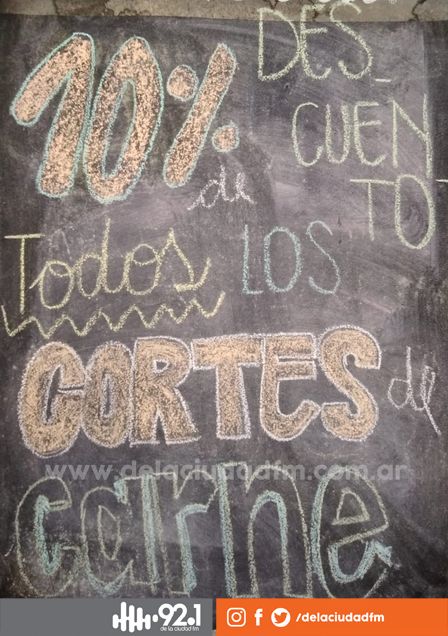 10% DES_
CUEN
TO
de
Todos LOS
CORTES de
www.delaciudadfm.com.ar
carne
92.1
de la ciudad fm
/delaciudadfm